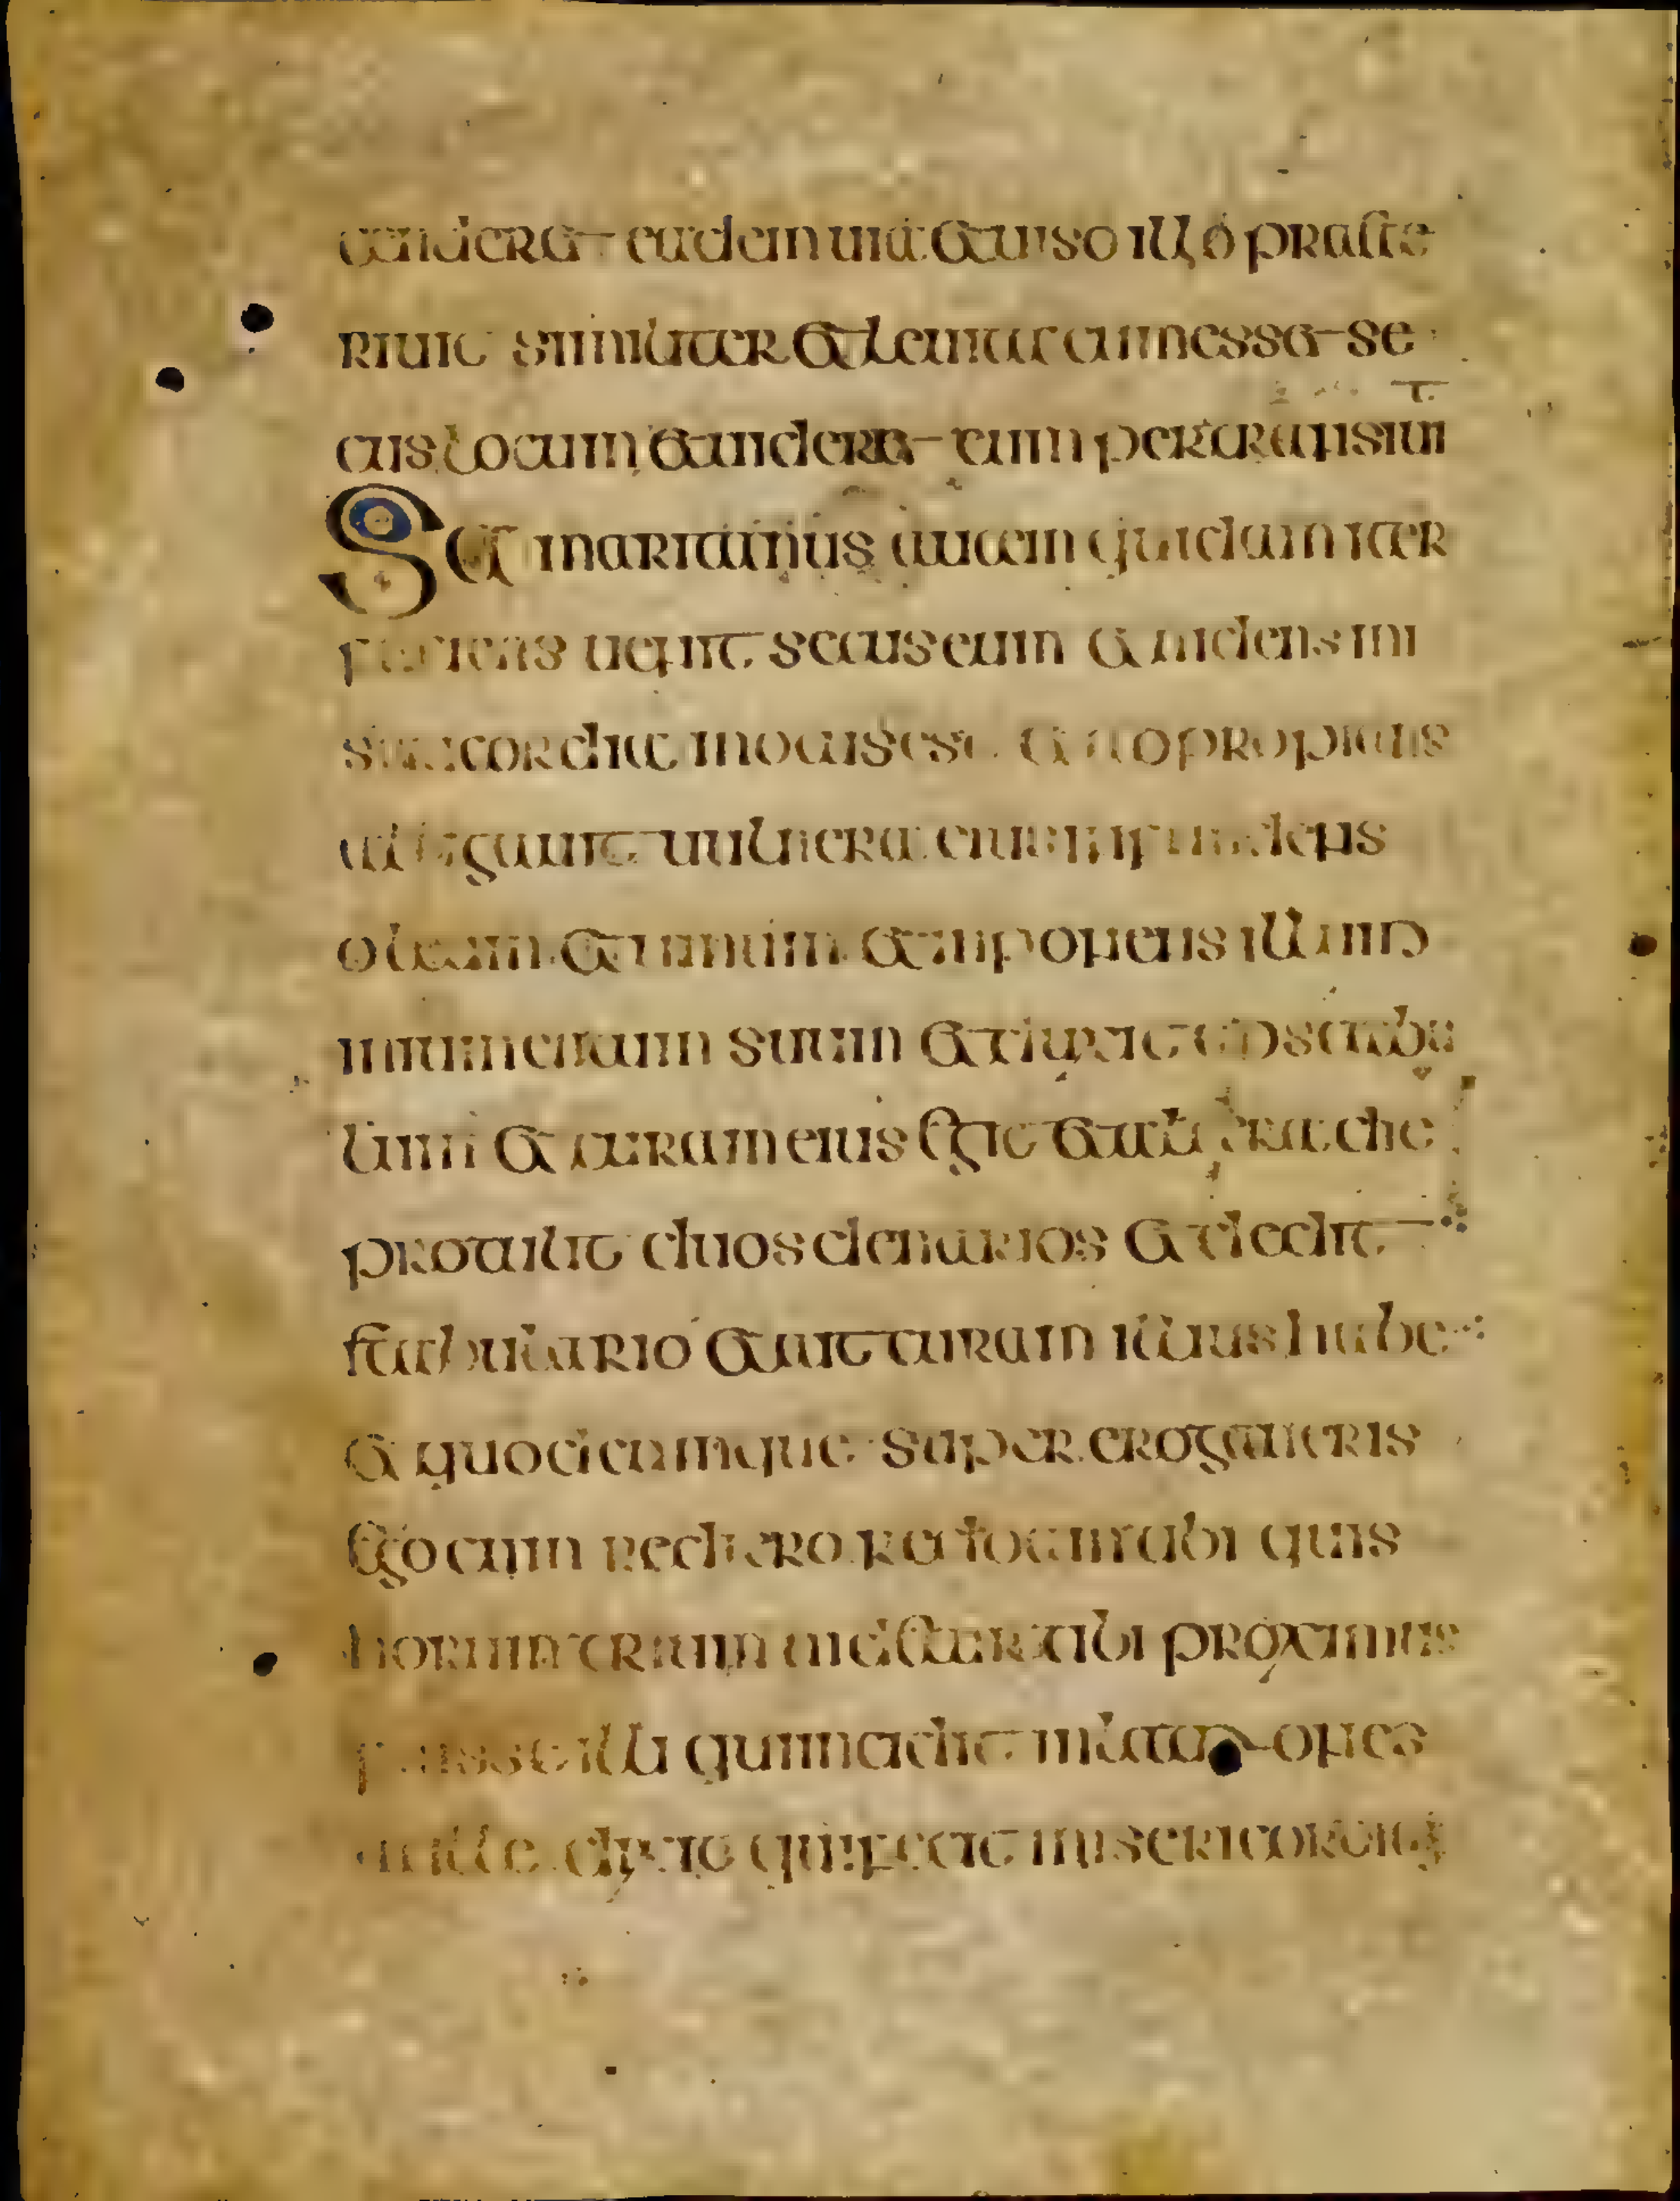 cenderet eadem uia et uiso illo praete
riuit similiter et leuita cum esset se
cus locum et uideret eum pertransiuit
Samaritanus autem quidam iter
faciens uenit secus eum et uidens mi
sericordia motus est et appropians
alligauit uulnera eius infundens
oleum et uinum et inponens illum in
iumentum suum et duxit in stabu
lum et curam eius egit et altera die
protulit duos denarios et dedit
stabulario et ait curam illius habe
et quodcumque super erogaueris
ego cum rediero reddam tibi quis
horum trium uidetur tibi proximus
fuisse illi qui incidit in latrones
at ille dixit qui fecit misericordiam